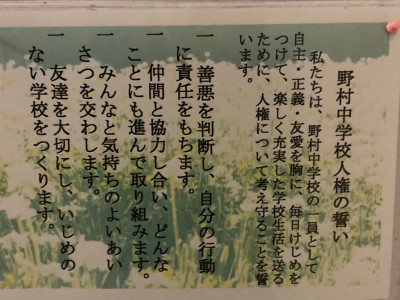 野村中学校人権の誓い
私たちは、野村中学校の一員として
自主・正義・友愛を胸に、毎日けじめを
つけて、楽しく充実した学校生活を送る
ために、人権について考え守ることを誓
います。
一 善悪を判断し、自分の行動
に責任をもちます。
一 仲間と協力し合い、どんな
ことにも進んで取り組みます。
一 みんなと気持ちのよいあい
さつを交わします。
一 友達を大切にし、いじめの
ない学校をつくります。